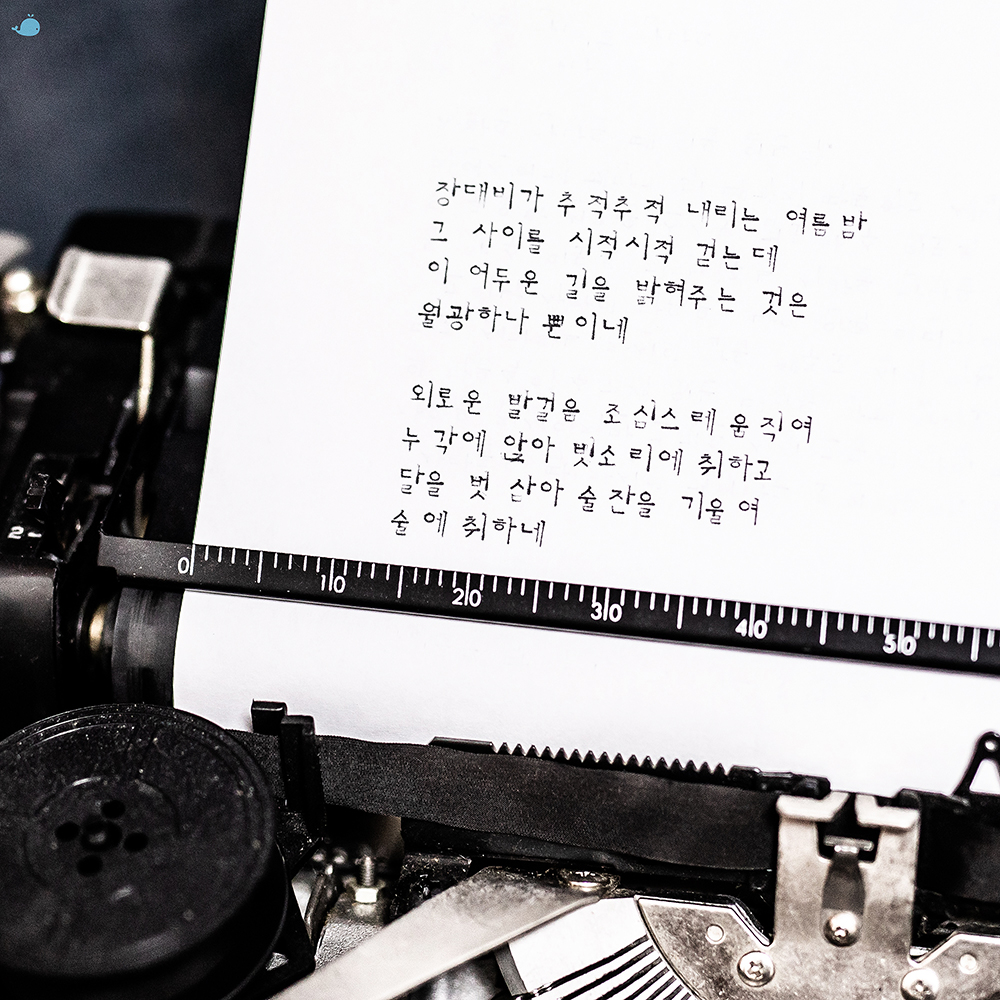 장대비가 추적추적 내리는 여름밤
그 사이를 시적시적 걷는데
이 어두운 길을 밝혀주는 것은
월광하나 뿐이네
외로운 발걸음 조심스레 움직여
누각에 앉아 빗소리에 취하고
달을 벗 삼아 술잔을 기울여
술에 취하네
0 10 20 30 40 50
2-